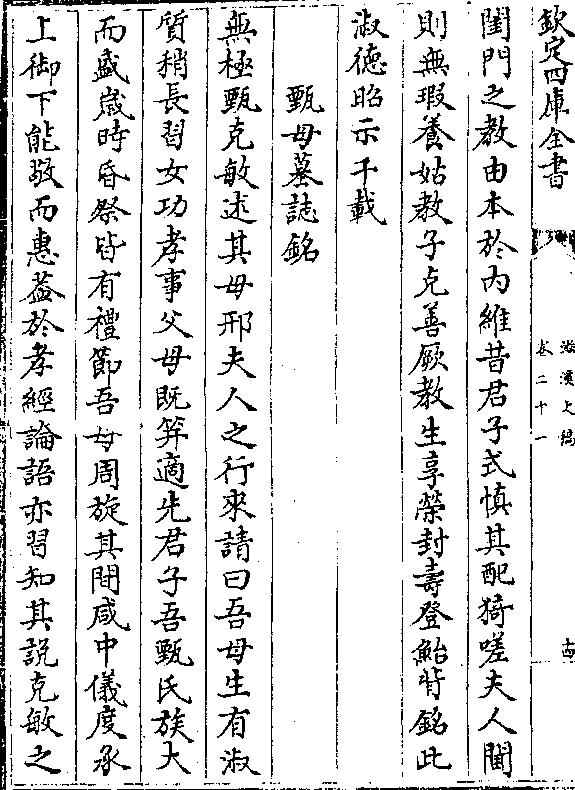 欽定四庫全書
滋溪文稿
卷二十一
十四
閨門之教由本於内維昔君子式慎其配猗嗟夫人閫
則無瑕養姑教子克善厥教生享榮封壽登鮐背銘此
淑德昭示千載
甄母墓誌銘
無極甄克敏述其母邢夫人之行來請曰吾母生有淑
質稍長習女功孝事父母既笄適先君子吾甄氏族大
而盛歳時昏祭皆有禮節吾母周旋其間咸中儀度承
上御下能敬而惠葢於孝經論語亦習知其說克敏之